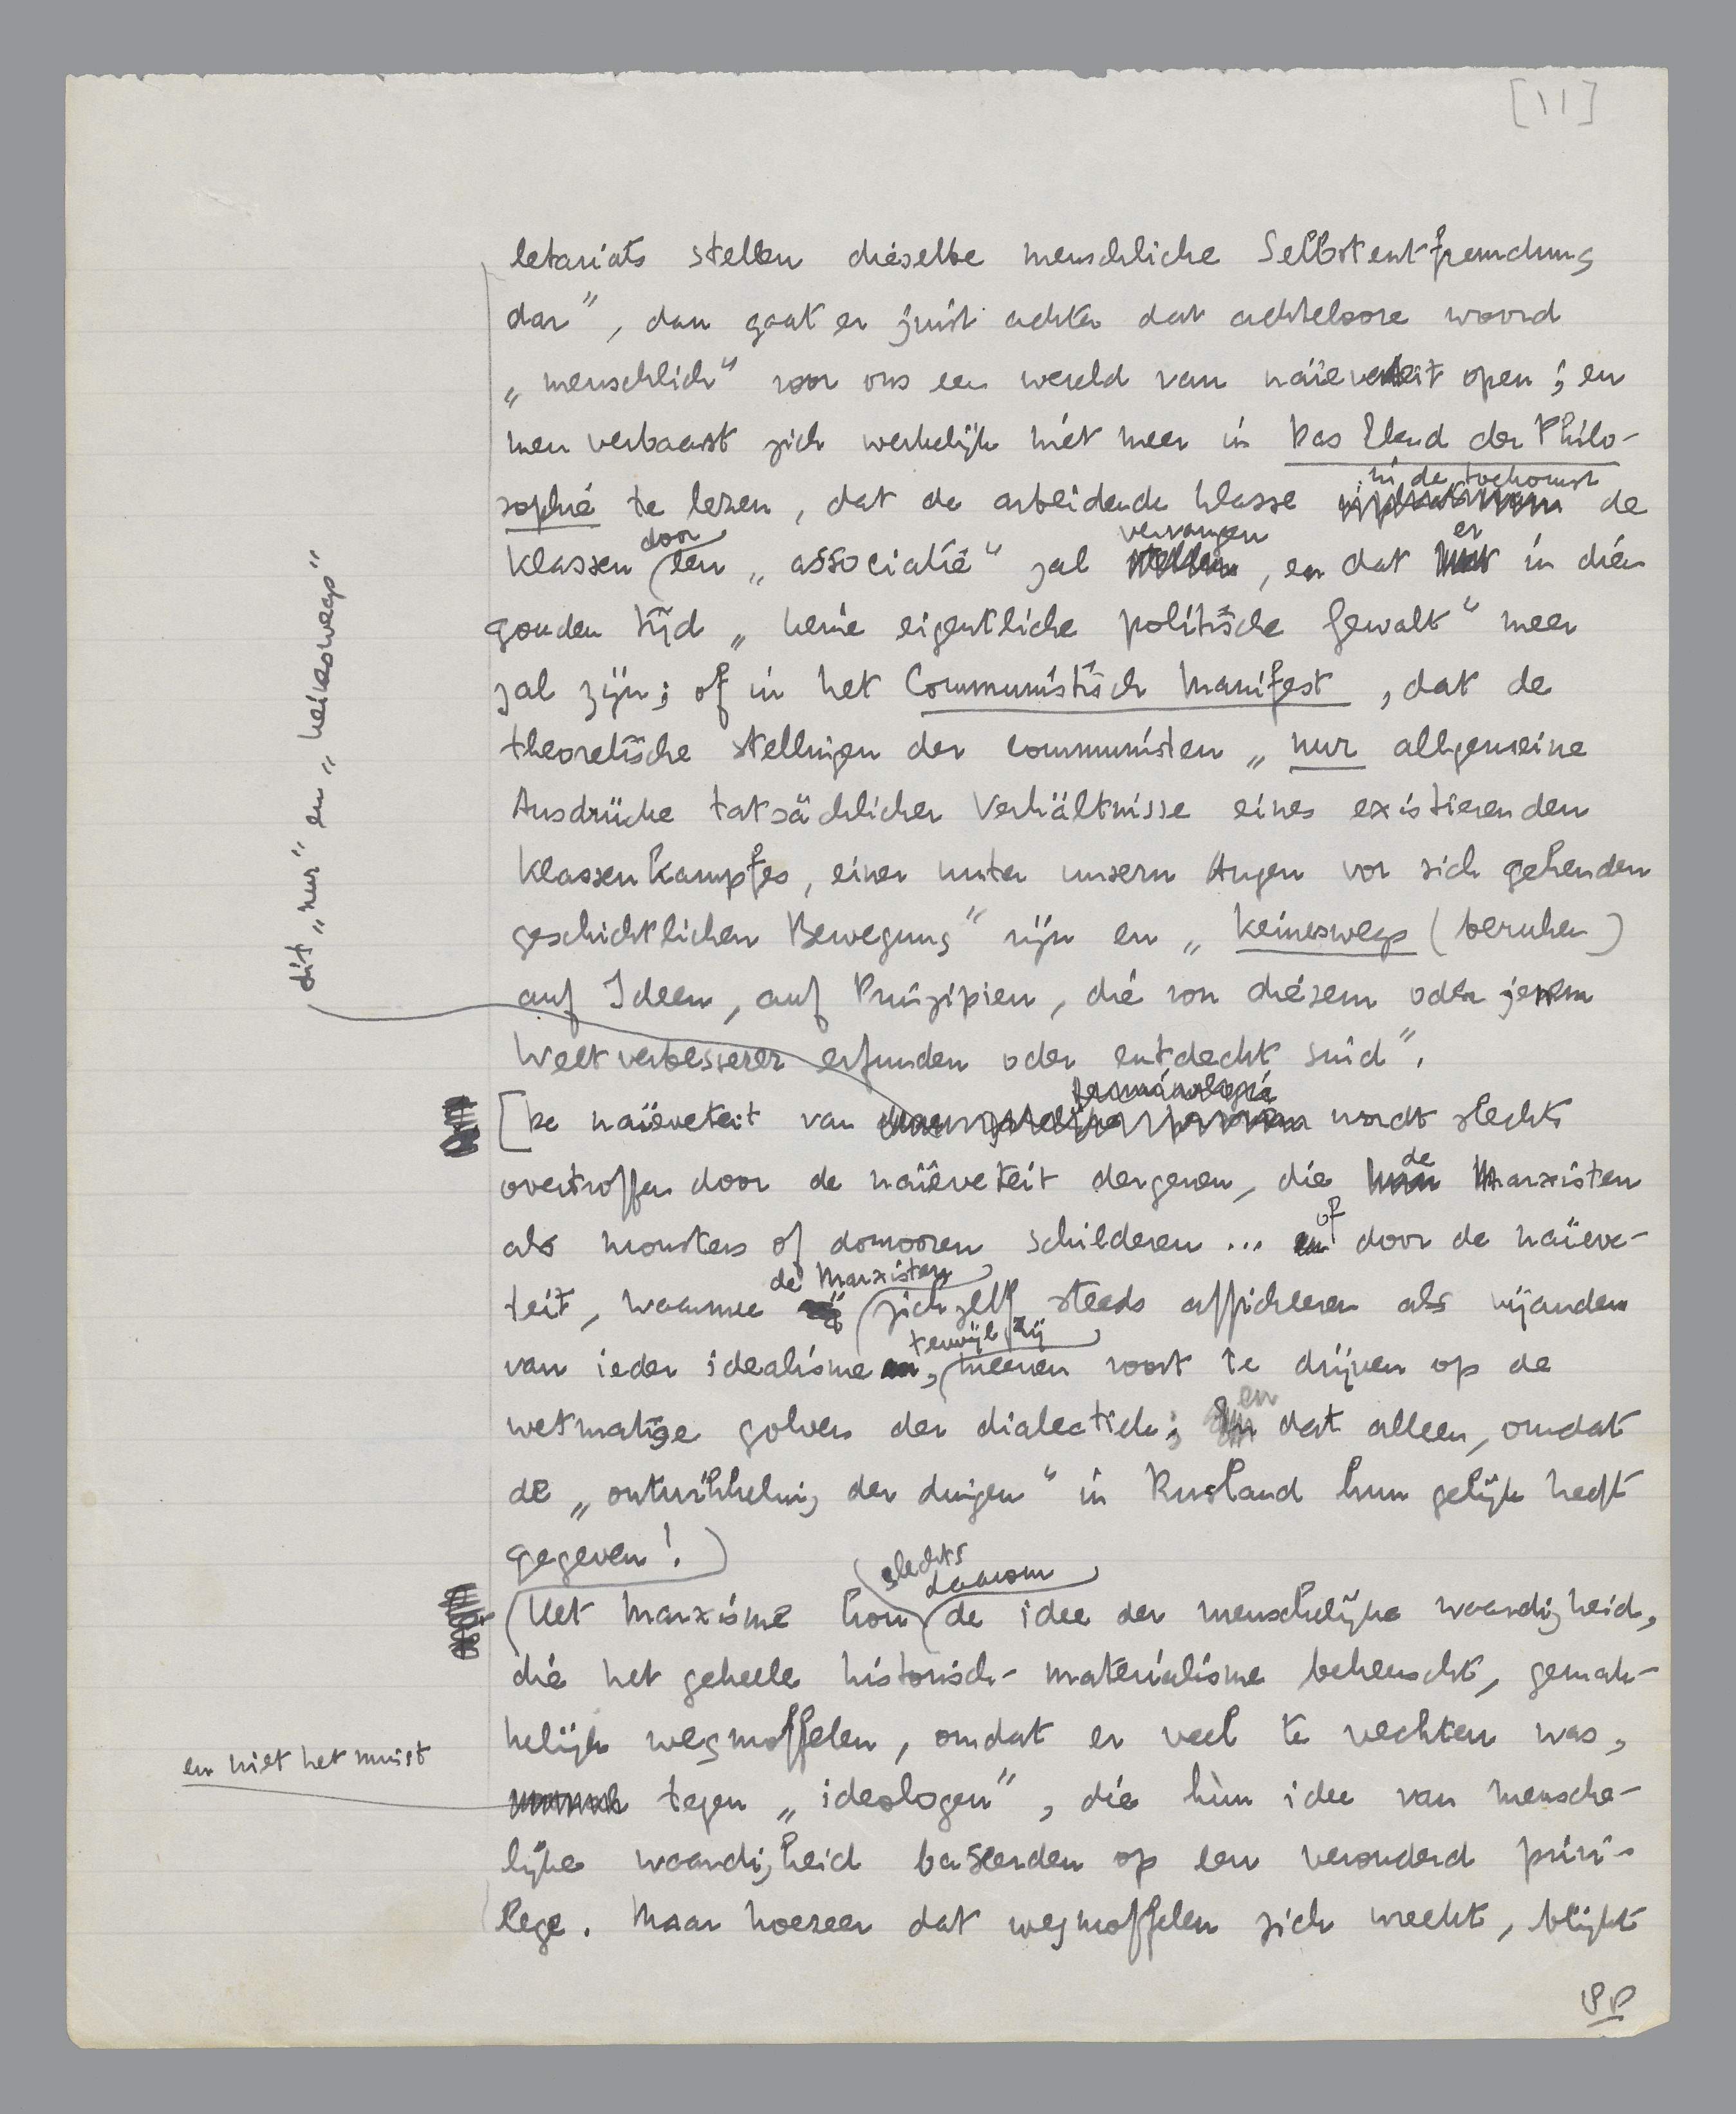 [11]
letariats stellen dieselbe menschliche Selbstentfremdung
dar”, dan gaat er juist achter dat achtelooze woord
„menschlich” voor ons een wereld van naïeveteit open; en
men verbaast zich werkelijk niet meer in Das Elend der Philo-
in de toekomst
sophie te lezen, dat de arbeidende klasse de
door vervangen er
klassen een „associatie” zal , en dat in dien
gouden tijd „keine eigentliche politische Gewalt” meer
zal zijn; of in het Communistisch Manifest, dat de
theoretische stellingen der communisten „nur allgemeine
Ausdrücke tatsächlicher Verhältnisse eines existierenden
Klassenkampfes, einer unter unsern Augen vor sich gehenden
geschichtlichen Bewegung” zijn en „keineswegs (beruhen)
auf Ideen, auf Prinzipien, die von diesem oder jenem
Weltverbesserer erfunden oder entdeckt sind”.
dit „nur” en „keineswegs”
terminologie
[De naïeveteit van wordt slechts
de
overtroffen door de naïeveteit dergenen, die Marxisten
of
als monsters of domooren schilderen ... door de naïeve-
de Marxisten
teit, waarmee zichzelf steeds afficheeren als vijanden
terwijl zij
van ieder idealisme, meenen voort te drijven op de
en
wetmatige golven der dialectiek; dat alleen, omdat
de „ontwikkeling der dingen” in Rusland hun gelijk heeft
gegeven!)
slechts
daarom
(Het Marxisme kon de idee der menschelijke waardigheid,
die het geheele historisch-materialisme beheerscht, gemak-
kelijk wegmoffelen, omdat er veel te vechten was,
en niet het minst
tegen „ideologen”, die hùn idee van mensche-
lijke waardigheid baseerden op een verouderd privi-
lege. Maar hoezeer dat wegmoffelen zich wreekt, blijkt